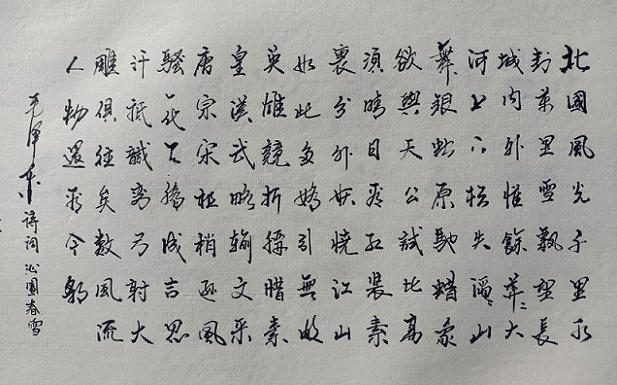 北國風光千里冰
封萬里雪飄望長
城内外惟餘莽〻大
河上下頓失滔〻山
舞銀蛇原馳蠟象
欲與天公試比高
須晴日看紅裝素
裹分外妖嬈江山
如此多嬌引無數
英雄競折腰惜秦
皇漢武略輸文采
唐宗宋祖稍遜風
騷一代天驕成吉思
汗祇識彎弓射大
雕俱往矣數風流
人物還看今朝
毛澤東詩詞 沁園春雪